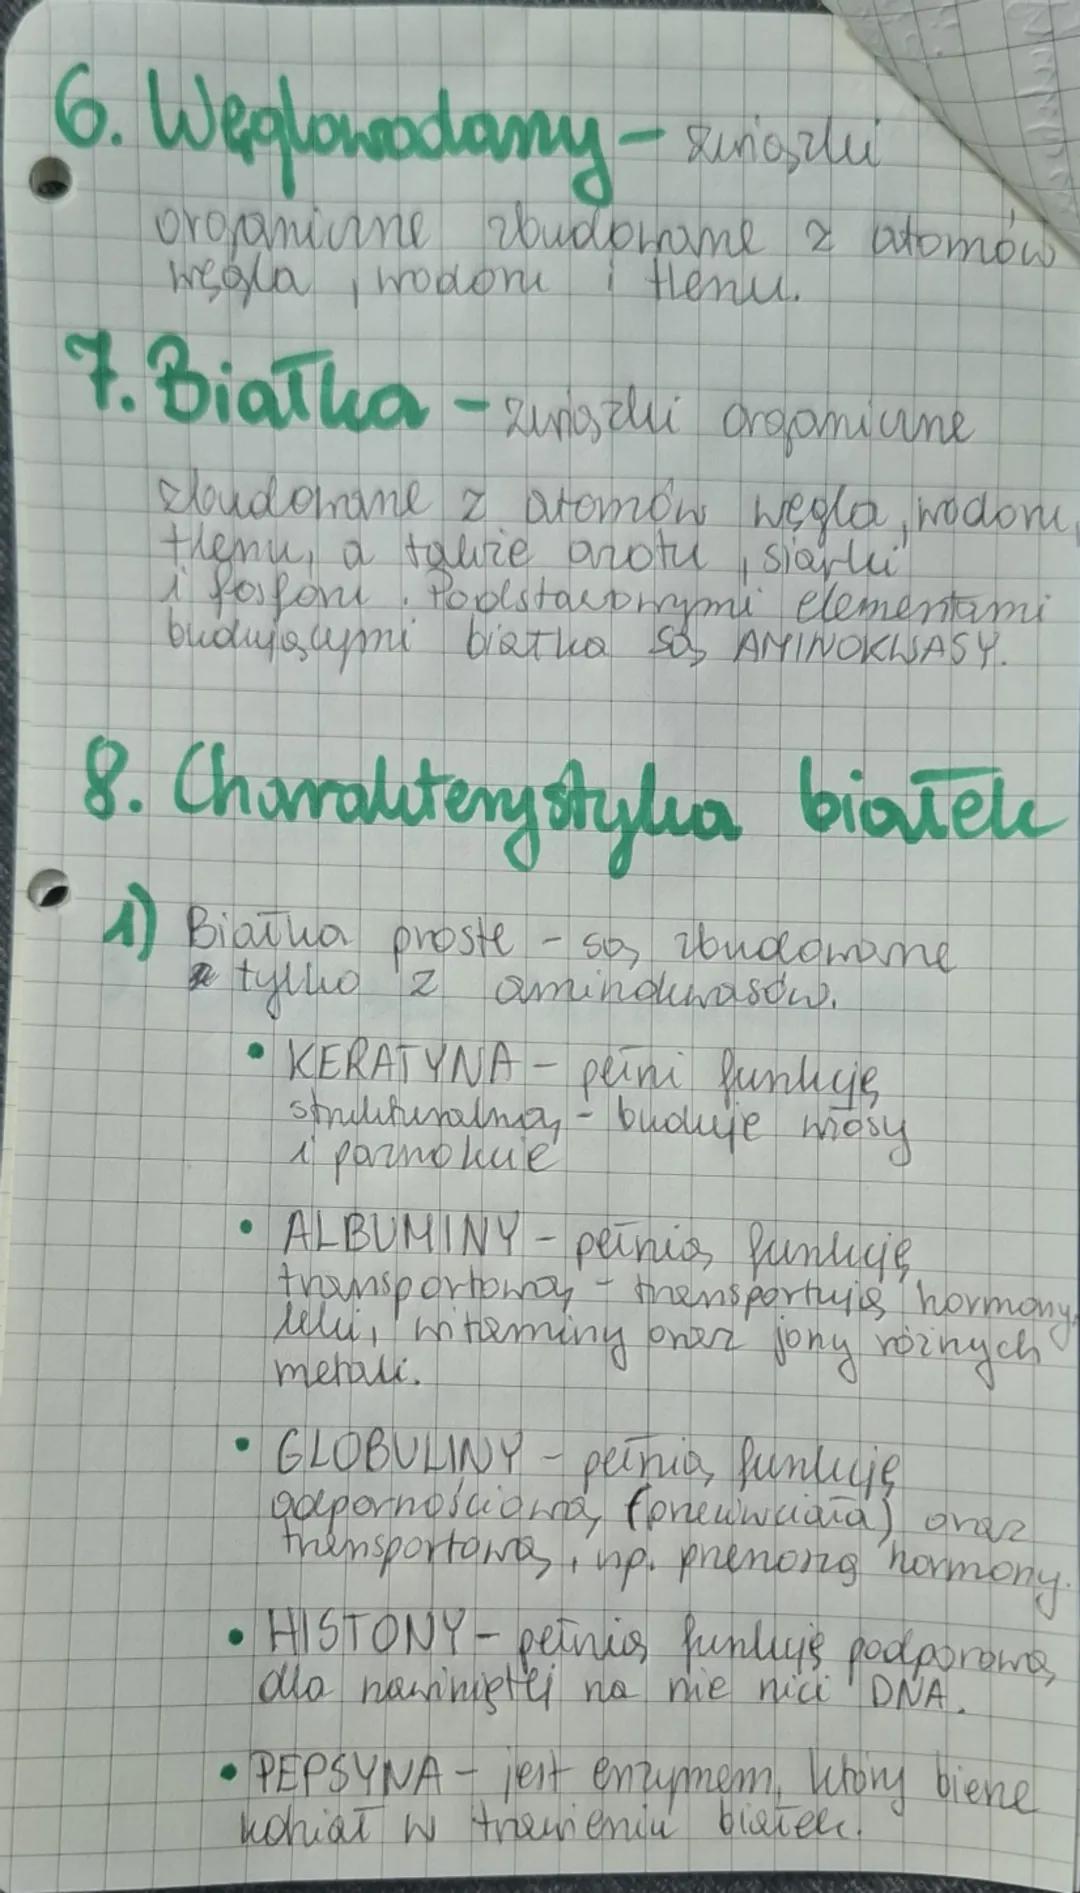 6. Węglowodany - związki
organiczne zbudowane z atomów
węgla, wodoru i tlenu.
7. Białka - związki organiczne
zbudowane z atomów węgla, wodoru,
tlenu, a także azotu, siarki
i fosforu. Podstawowymi elementami
budującymi białka są AMINOKWASY.
8. Charakterystyka białek
1) Białka proste - są zbudowane
tylko z aminokwasów.
• KERATYNA - pełni funkcję
strukturalną - buduje włosy
i paznokcie
• ALBUMINY - pełnią funkcję
transportową - transportują hormony,
leki, witaminy oraz jony różnych
metali.
• GLOBULINY - pełnią funkcję
odpornościową (przeciwciała) oraz
transportową, np. przenoszą hormony.
• HISTONY - pełnią funkcję podporową
dla nawiniętej na nie nici DNA.
• PEPSYNA - jest enzymem, który bierze
udział w trawieniu białek.